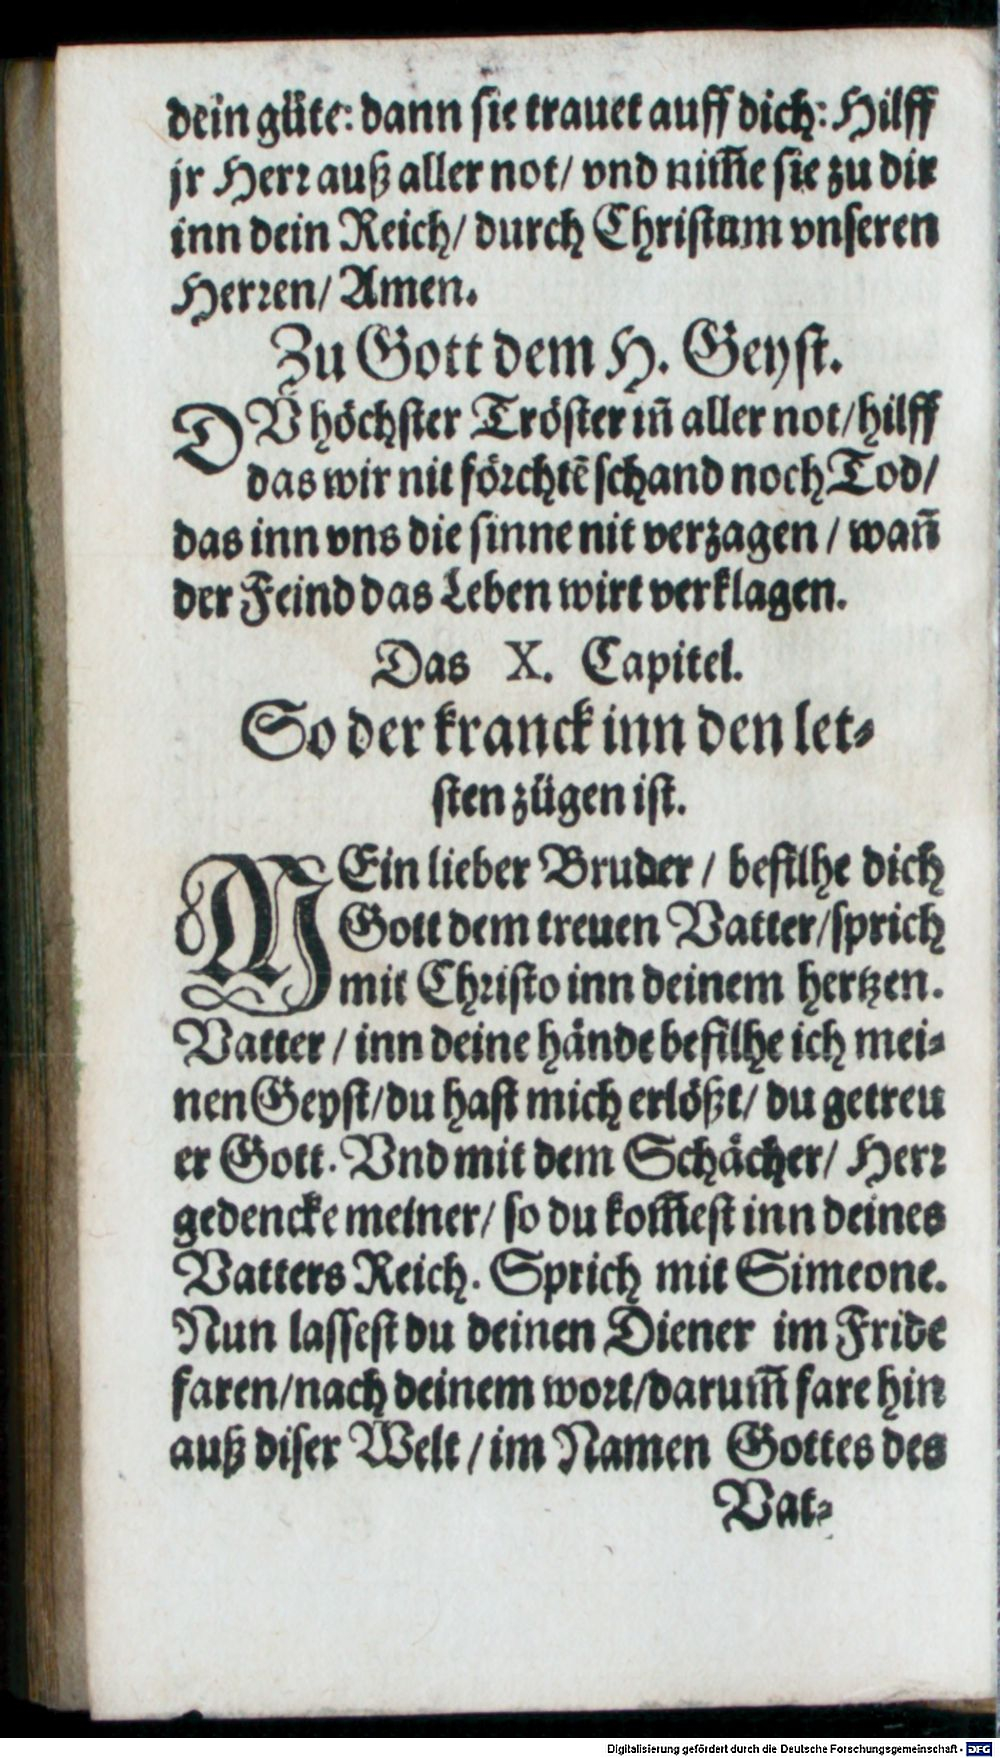 dein güte: dann sie trauet auff dich: Hilff
jr Herr auß aller not/ vnd nim̃e sie zu dir
inn dein Reich/ durch Christum vnseren
Herren/ Amen.
Zu Gott dem H. Geyst.
DV höchster Tröster iñ aller not/ hilff
das wir nit förchtẽ schand noch Tod/
das inn vns die sinne nit verzagen / wañ
der Feind das Leben wirt verklagen.
Das X. Capitel.
So der kranck inn den let-
sten zügen ist.
MEin lieber Bruder / befilhe dich
Gott dem treuen Vatter/ sprich
mit Christo inn deinem hertzen.
Vatter / inn deine hände befilhe ich mei-
nen Geyst/ du hast mich erlößt/ du getreu
er Gott. Vnd mit dem Schächer/ Herr
gedencke meiner/ so du kom̃est inn deines
Vatters Reich. Sprich mit Simeone.
Nun lassest du deinen Diener im Fride
faren/ nach deinem wort/ darum̃ fare hin
auß diser Welt / im Namen Gottes des
Vat-
Digitalisierung gefördert durch die Deutsche Forschungsgemeinschaft - DFG